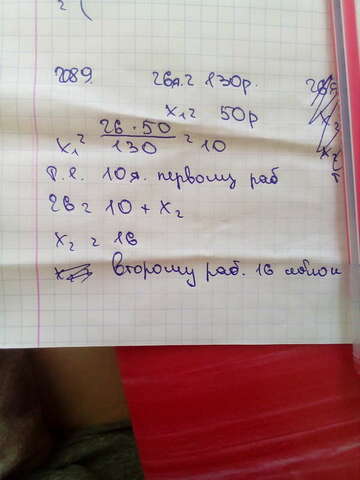 2089. 26я. = 130р.
x₁ = 50р
x₁ = 26 · 50 / 130 = 10
10я. первому раб
26 = 10 + x₂
x₂ = 16
второму раб. 16 яблок